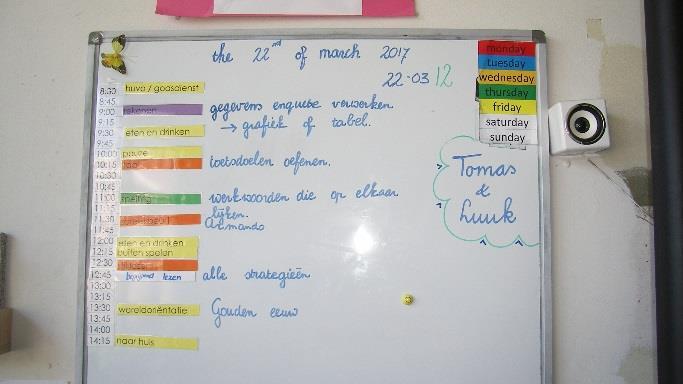 the 22nd of march 2017
22-03 12
monday
tuesday
wednesday
thursday
friday
saturday
sunday
8:30 huvo / godsdienst
8:45
9:00 rekenen gegevens enquete verwerken
9:15 → grafiek of tabel.
9:30 eten en drinken
9:45
10:00 pauze
10:15 taal toetsdoelen oefenen.
10:30
10:45
11:00 spelling werkwoorden die op elkaar
11:15 lijken.
11:30 Armando
11:45
12:00 eten en drinken
12:15 buiten spelen
12:30
12:45 begrijpend lezen alle strategieën
13:00
13:15
13:30 wereldoriëntatie Gouden eeuw
13:45
14:00
14:15 naar huis
Tomas
&
Luuk